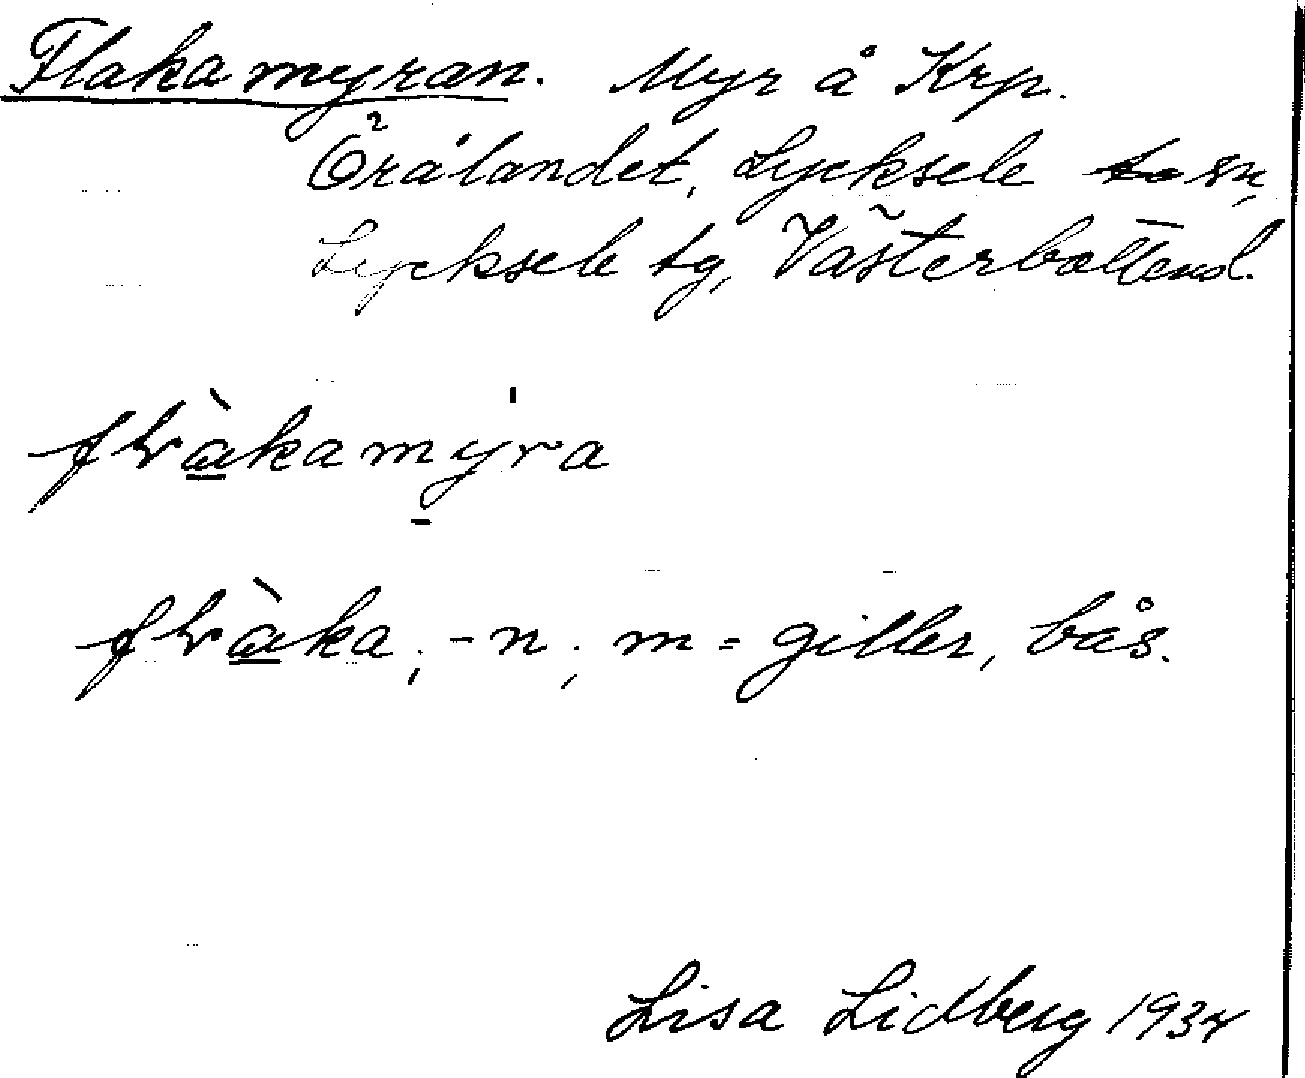 Flakamyran. Myr å Krp.
Örålandet, Lycksele sn,
Lycksele tg, Västerbottens l.
flàkamýra
flàka, -n, m = giller, bås.
Lisa Lidberg 1934